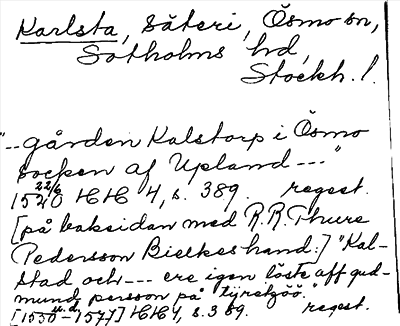 Karlsta, säteri, Ösmo sn,
Sotholms hd,
Stockh. l.
"-- gården Kalstorp i Ösmo
socken af Upland ---"
1520 22/6 HH 4, s. 389. regest.
[på baksidan med R.R. Thure
Pedersson Bielkes hand:] "Kal-
stad och --- ere igen löste aff gud-
mund persson på tyresöö."
[1550 - 1577] HH 4, s. 389. regest.